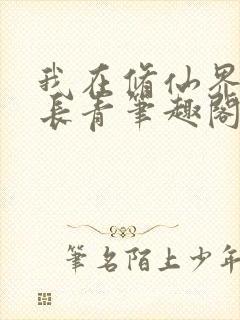 我在脩仙界
長青筆趣閣
筆名陌上少年